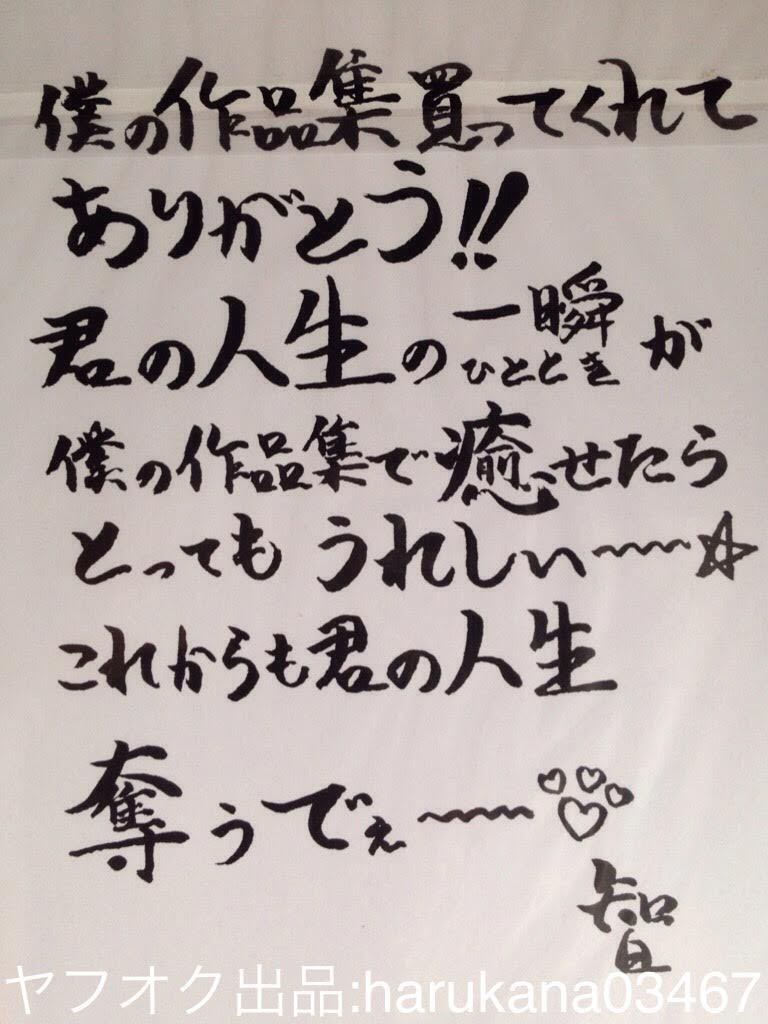 僕の作品集買ってくれて
ありがとう!!
君の人生の一瞬が
ひととき
僕の作品集で癒せたら
とってもうれしい〜〜〜☆
これからも君の人生
奪うでぇ〜〜〜♡♡♡♡
智
ヤフオク出品:harukana03467